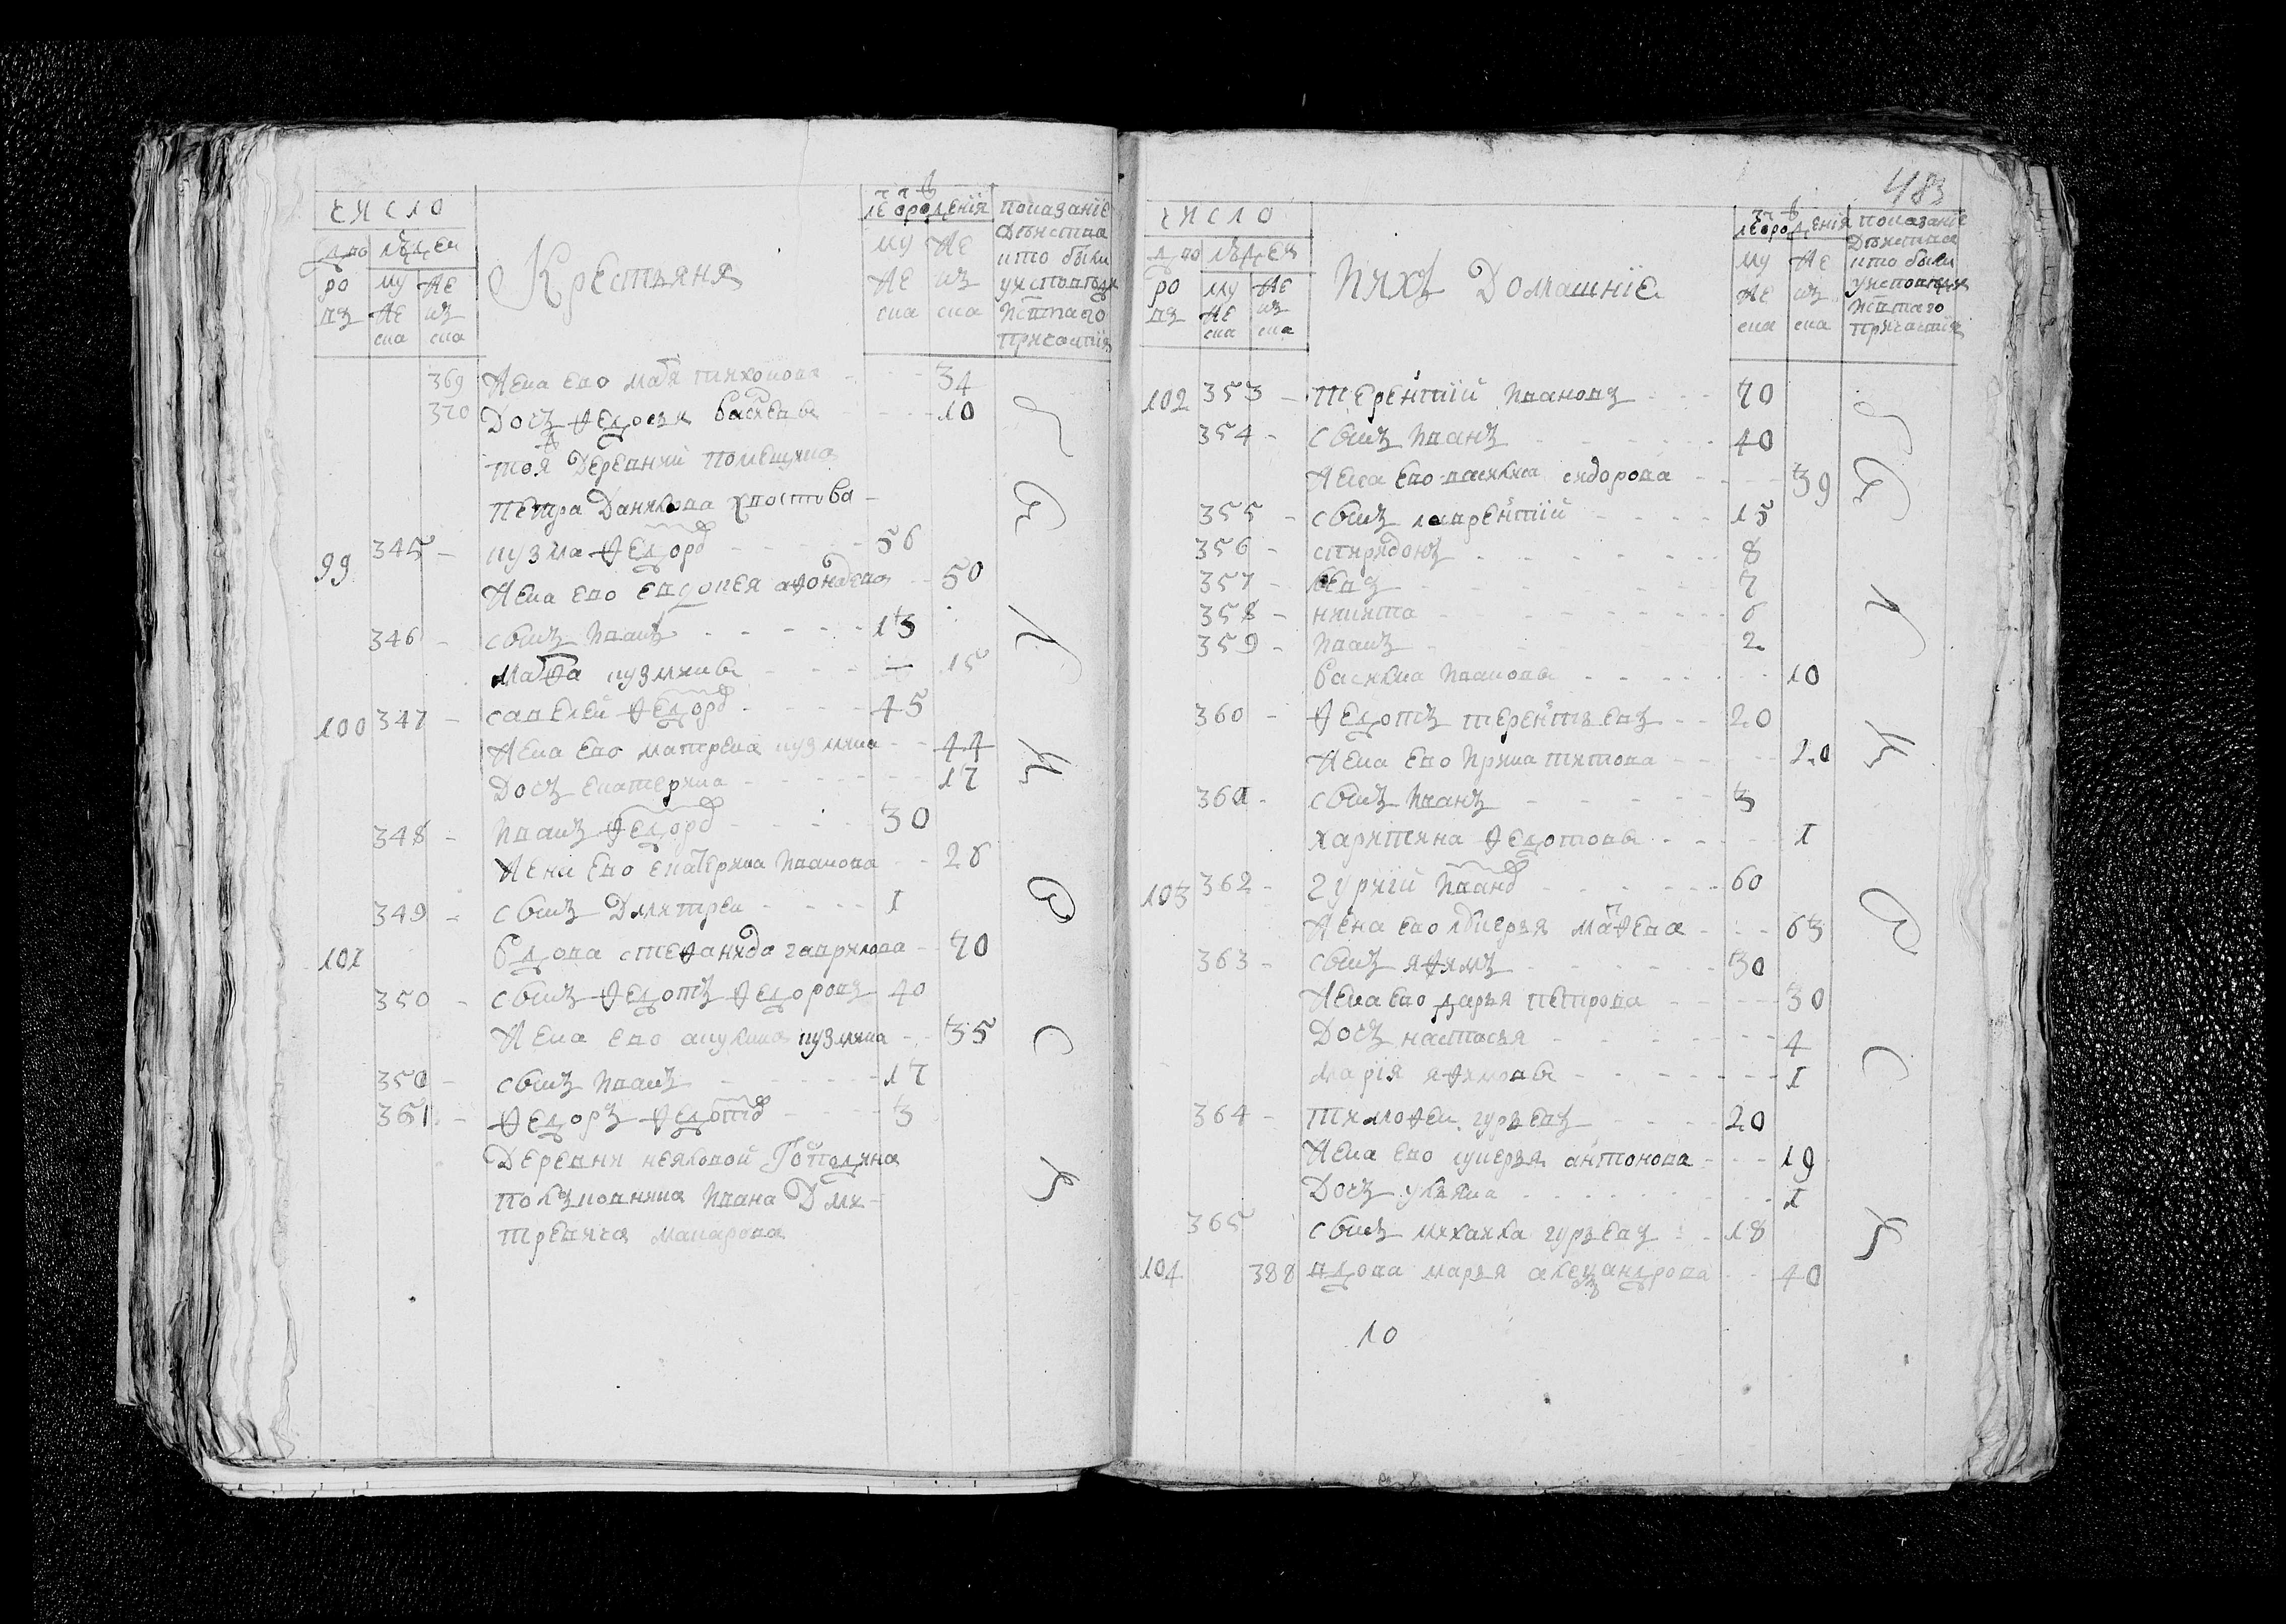 число
дво людеи
ро му же
въ же нъ
ска ска
Крестьяня
лѣ от рожденїя
му же
же нъ
ска ска
показанїе
действа
кто были
у исповѣди
и с̃таго
причастїя
369 жена ево мавра тихонова - - 34
370 дочь федосья василева - - - 10
тоя деревни помещика
петра данилова хвостова -
99 345 - кузма федоровъ - - - - - 56
жена ево евдокея афонасева - - 50
346 - сынъ иванъ - - - - - 13
марфа кузмина - - - - 15
100 347 - савелей федоровъ - - - - 45
жена ево матрена кузмина - - 44
дочь екатерина - - - - - - - 17
348 - иванъ федоровъ - - - - - 30
жена ево екатерина иванова - - 26
349 - сынъ дмитреи - - - - 1
101 вдова стефанида гаврилова - - 70
350 - сынъ федотъ федоровъ 40
жена ево акулина кузмина - - 35
350 - сынъ иванъ - - - - - - 17
351 - федоръ федотовъ - - - - 3
деревни
полковника ивана дми-
треевича макарова
были
483
число
дво людеи
ро му же
въ же нъ
ска ска
ихъ домашнїе
лѣ от рожденїя
му же
же нъ
ска ска
показанїе
действа
кто были
у исповѣди
и с̃таго
причастїя
102 353 - терентїй ивановъ - - - 70
354 - сынъ иванъ - - - - - - 40
жена ево василиса сидорова - - - - 39
355 - сынъ лаврентїй - - - - 15
356 - спиридонъ - - - - - - - 8
357 - - - - - - - - - 7
358 - никита - - - - - - - - 6
359 - иванъ - - - - - - - - 2
василиса иванова - - - - - - - 10
360 - федотъ терентьевъ - - 20
жена ево ирина титова - - - - - 20
361 - сынъ иванъ - - - - - - 3
харитина федотова - - - - - 1
103 362 - гурїй ивановъ - - - - - - 60
жена ево лукерья матфева - - - 63
363 - сынъ яфимъ - - - - - - 30
жена ево дарья петрова - - - - - 30
дочь настасья - - - - - - - - 4
марїя яфимова - - - - - - - - 1
364 - тимофеи гурьевъ - - - - 20
жена ево лукерья антонова - - - 19
дочь ульяна - - - - - - - - 1
365 сынъ михаила гурьевъ - - 18
104 388 вдова марья александрова - - 40
10
были